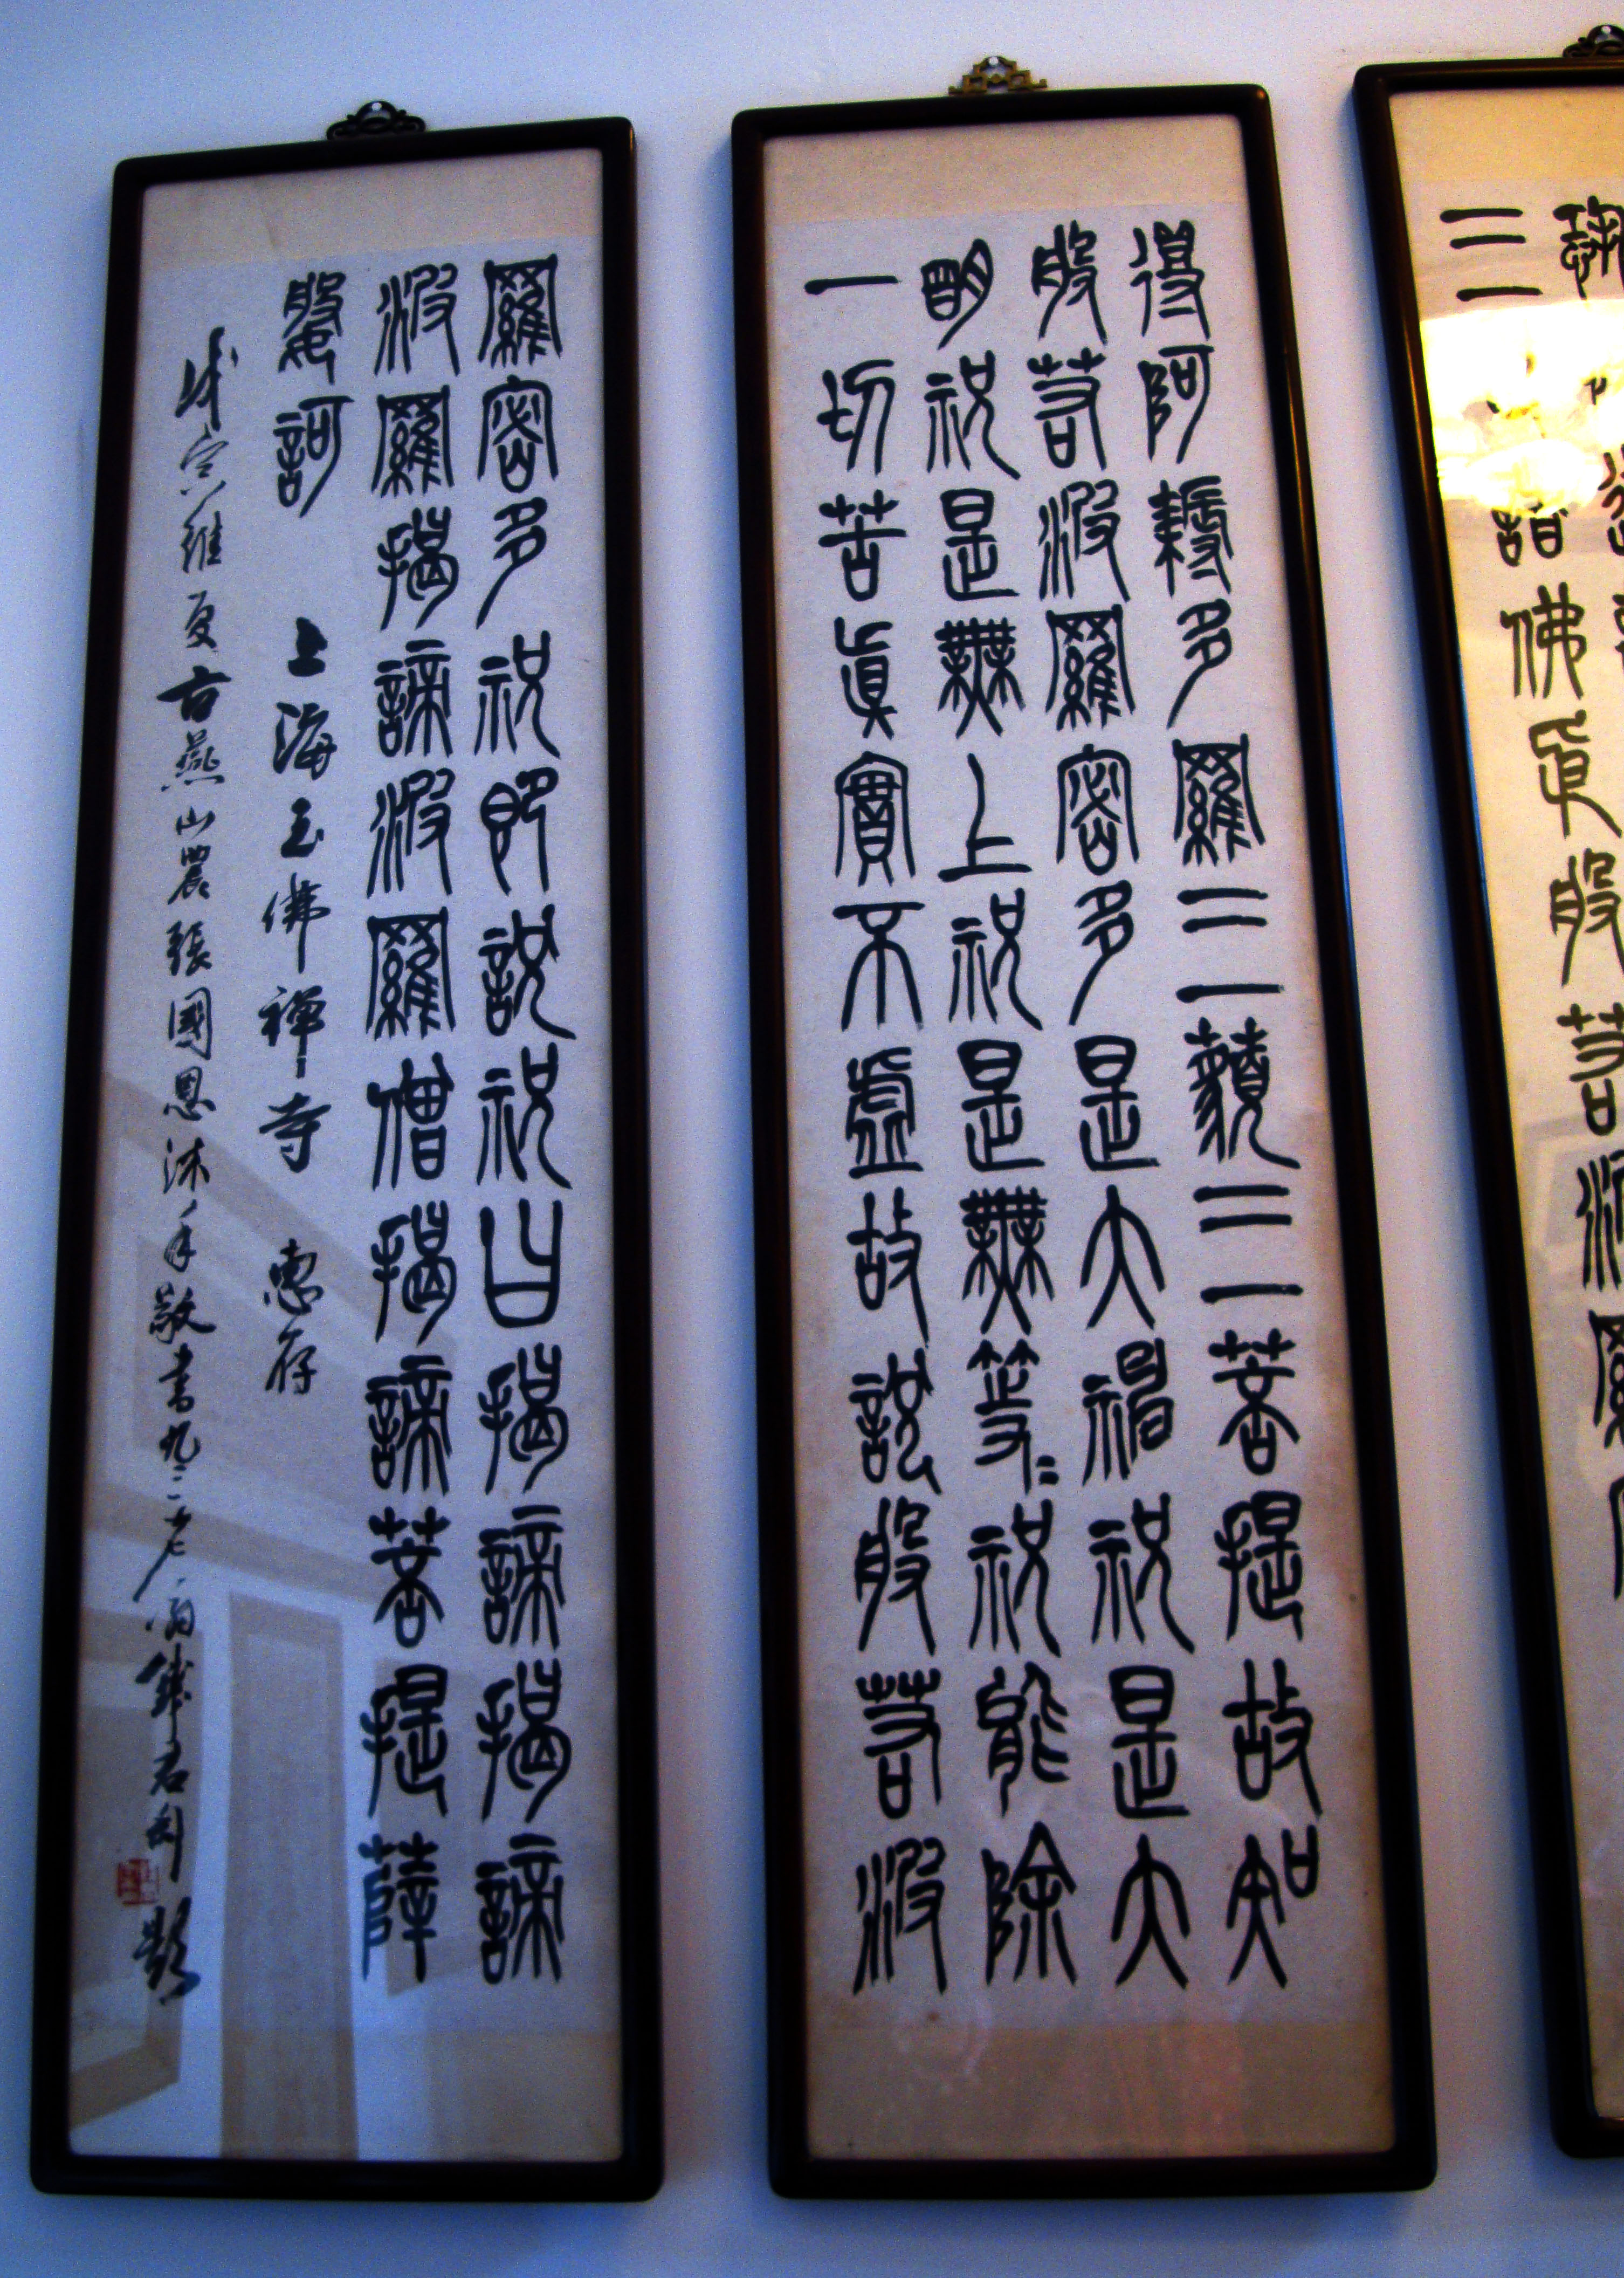 諸佛依般若波羅
得阿耨多羅三藐三菩提故知
般若波羅密多是大神祝是大
明祝是無上祝是無等〻祝能除
一切苦眞實不虛故說般若波
羅密多祝即說祝曰揭諦揭諦
波羅揭諦波羅僧揭諦菩提薩
婆訶 上海玉佛禪寺 惠存
戊寅維夏古燕山農張國恩沐手敬書九二老翁錢君匋題